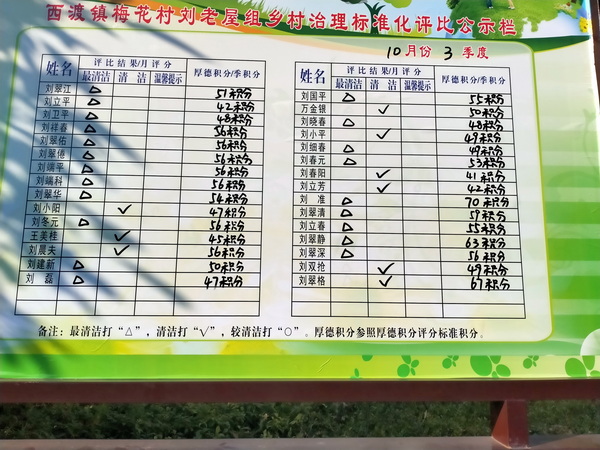 西渡镇梅花村刘老屋组乡村治理标准化评比公示栏
10月份 3 季度
姓名 评比结果/月评分 厚德积分/季积分
最清洁 清洁 温馨提示
刘翠江 △ 51积分
刘立平 △ 42积分
刘卫平 △ 48积分
刘祥春 △ 56积分
刘翠佑 △ 56积分
刘翠德 △ 56积分
刘端平 △ 56积分
刘端科 △ 56积分
刘翠华 △ 54积分
刘小阳 ✓ 47积分
刘冬元 △ 56积分
王美桂 ✓ 45积分
刘晨夫 ✓ 56积分
刘建新 △ 50积分
刘磊 △ 47积分
姓名 评比结果/月评分 厚德积分/季积分
最清洁 清洁 温馨提示
刘国平 △ 55积分
万金银 ✓ 50积分
刘晓春 △ 48积分
刘小平 ✓ 49积分
刘细春 △ 49积分
刘春元 △ 53积分
刘春阳 ✓ 41积分
刘立芳 ✓ 42积分
刘准 △ 70积分
刘翠清 △ 59积分
刘立春 △ 55积分
刘翠静 △ 63积分
刘翠深 △ 56积分
刘双抢 ✓ 49积分
刘翠格 ✓ 67积分
备注：最清洁打“△”，清洁打“√”，较清洁打“○”。厚德积分参照厚德积分评分标准积分。